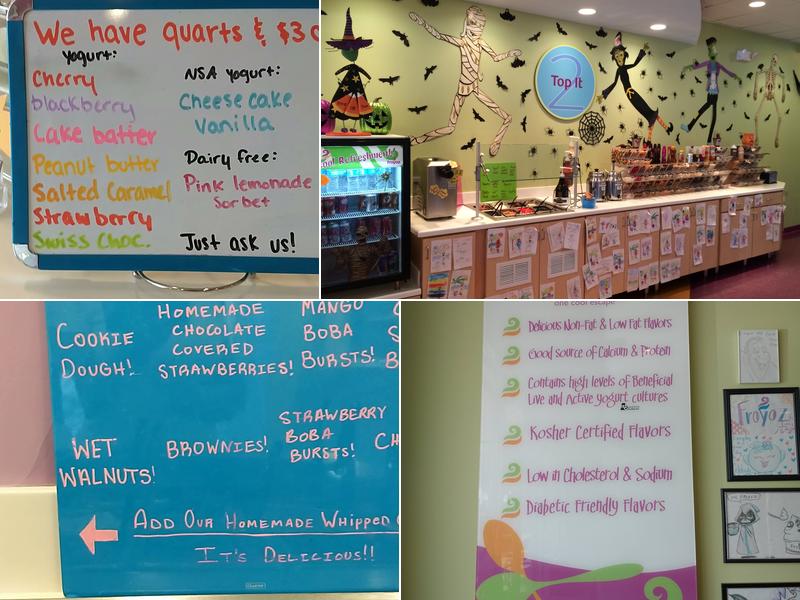 We have quarts & $3
Yogurt:
Cherry
blackberry
Cake batter
Peanut butter
Salted Caramel
Strawberry
Swiss Choc.
NSA Yogurt:
Cheesecake
Vanilla
Dairy free:
Pink lemonade
Sorbet
Just ask us!
2
Top It
Cool Refreshments
COOKIE
DOUGH!
HOMEMADE
CHOCOLATE
COVERED
STRAWBERRIES!
MANGO
BOBA
BURSTS!
WET
WALNUTS!
BROWNIES!
STRAWBERRY
BOBA
BURSTS!
CH
ADD OUR HOMEMADE WHIPPED
IT'S DELICIOUS!!
one cool escape
Delicious Non-Fat & Low Fat Flavors
Good source of Calcium & Protein
Contains high levels of Beneficial
Live and Active yogurt cultures
Kosher Certified Flavors
Low in Cholesterol & Sodium
Diabetic Friendly Flavors
Froyoz